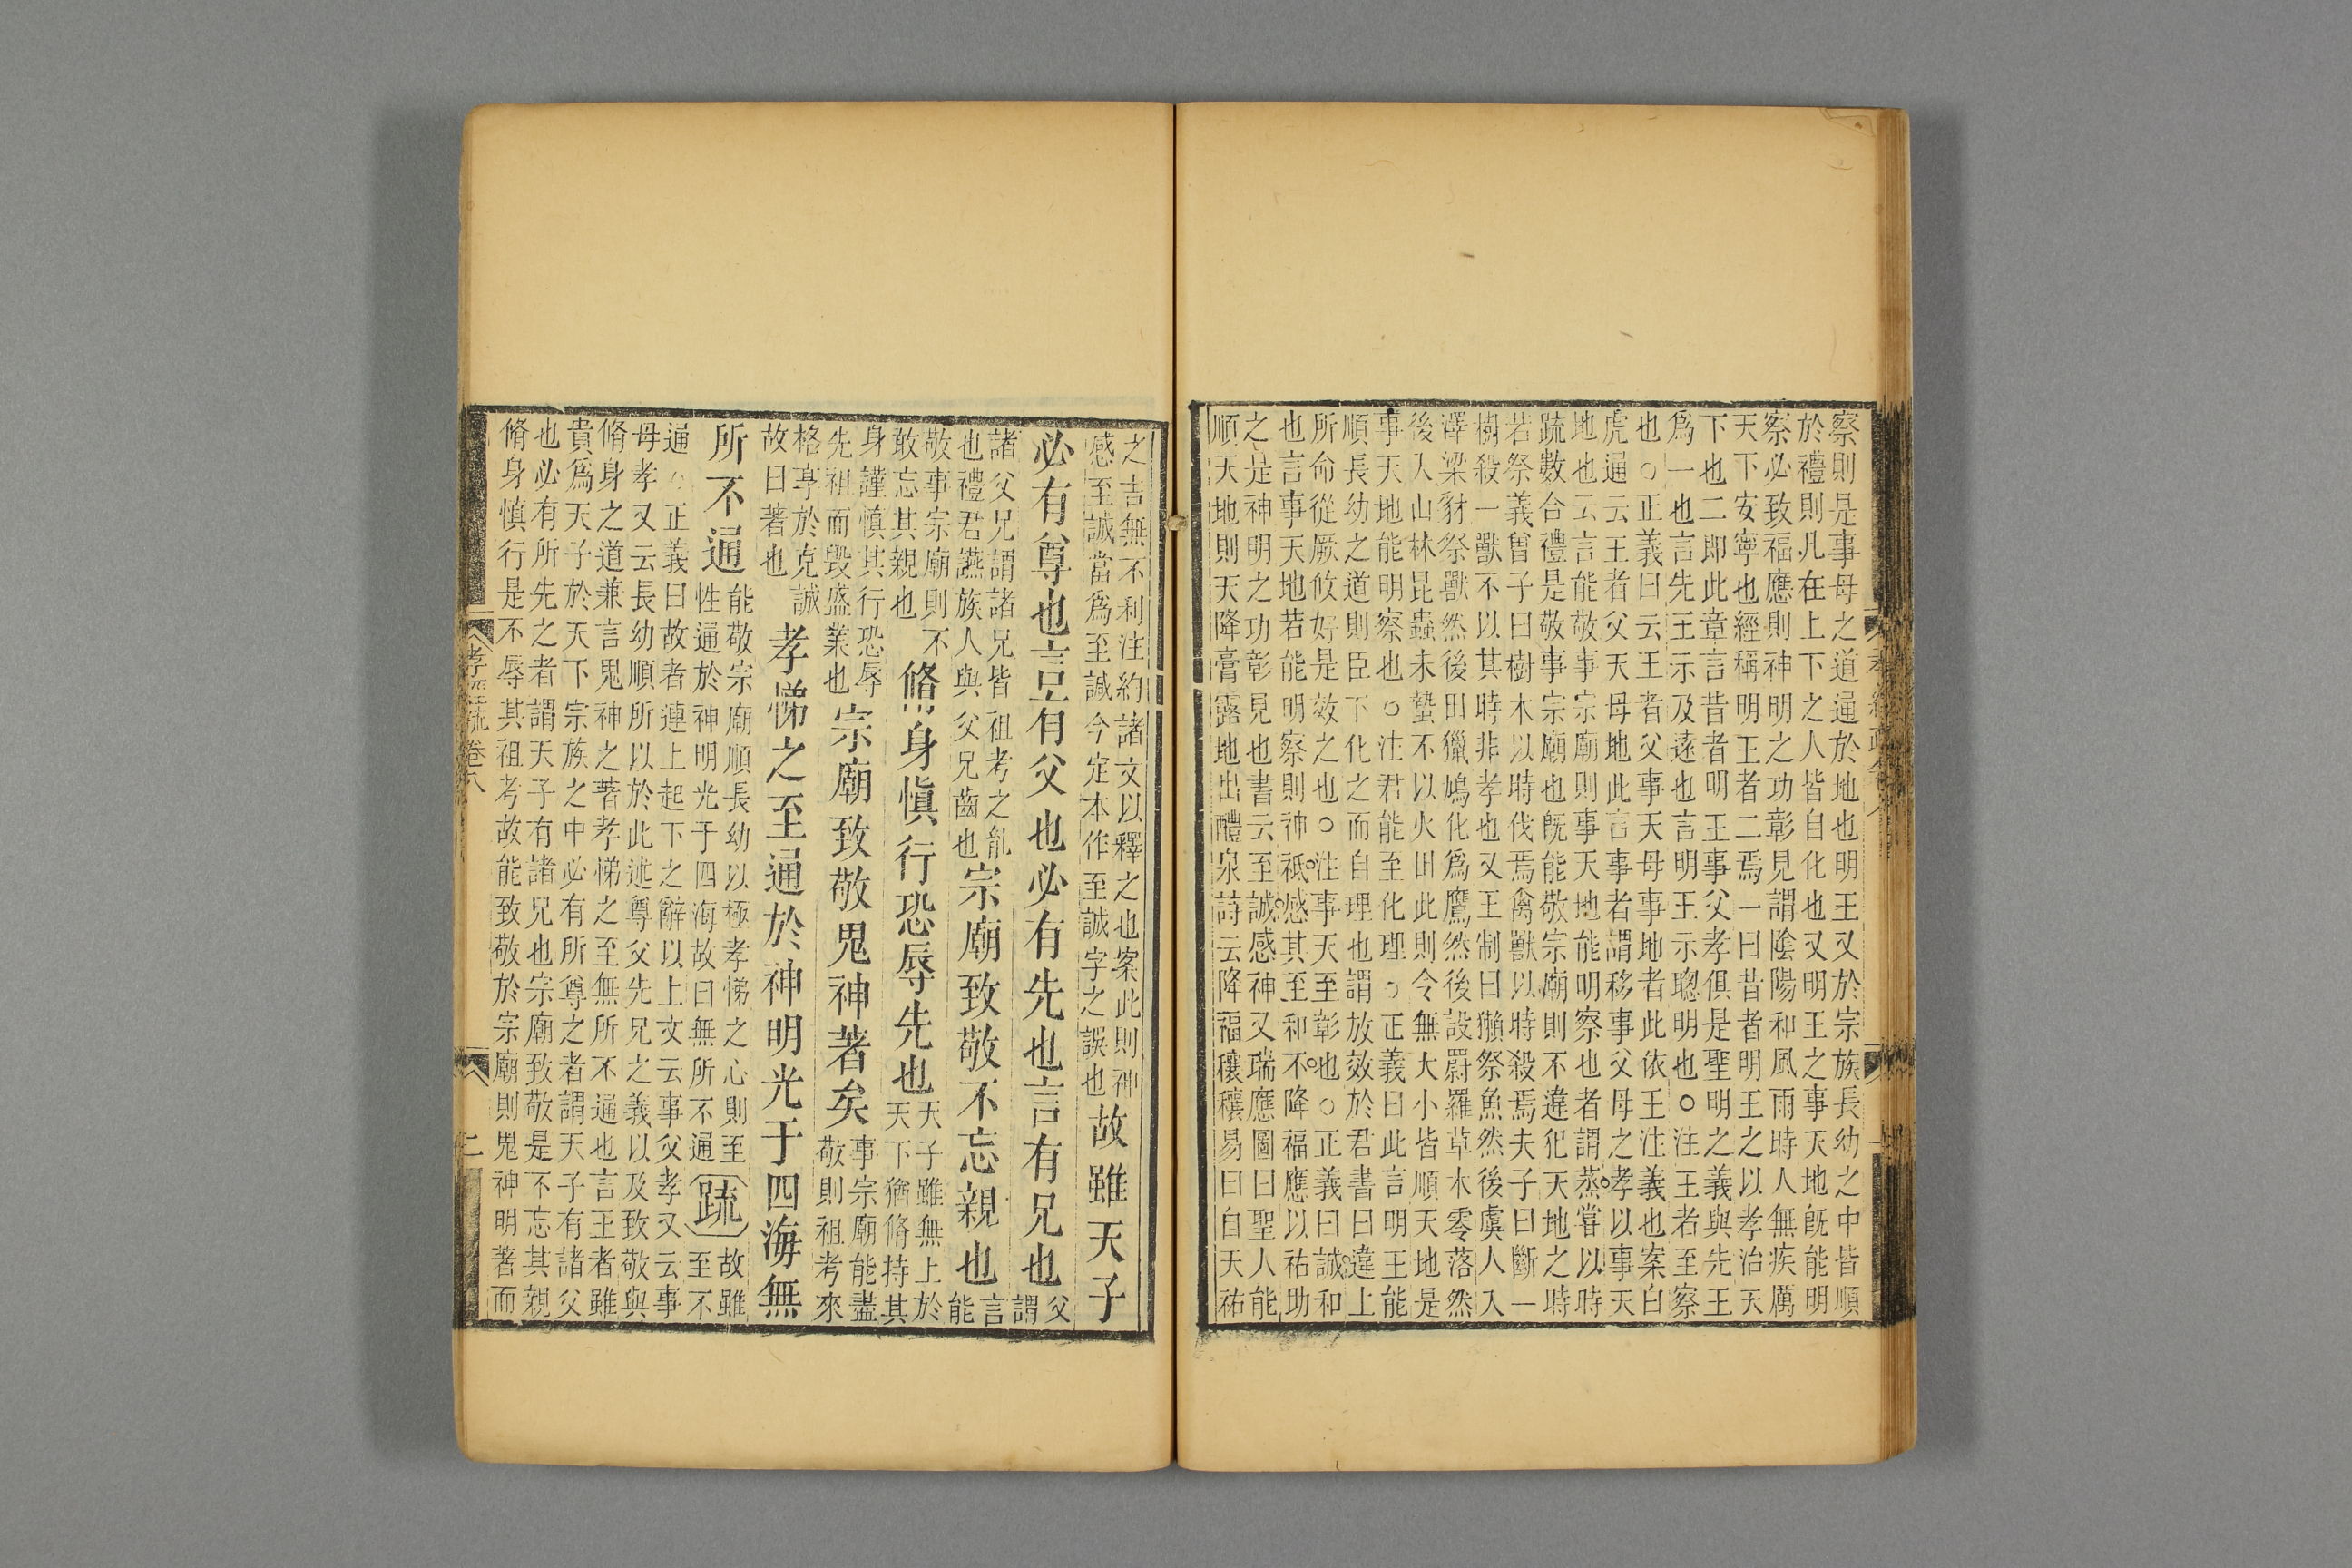 察則是事母之道通於地也明王又於宗族長幼之中皆順
於禮則凡在上下之人皆自化也又明王之事天地旣能明
察必致福應則神明之功彰見謂陰陽和風雨時人無疾厲
天下安寧也經稱明王者二焉一曰昔者明王之以孝治天
下也二卽此章言昔者明王事父孝俱是聖明之義與先王
爲一也言先王示及遠也言明王示聰明也○注王者至察
也○正義曰云王者父事天母事地者此依王注義也案白
虎通云王者父天母地此言事者謂移事父母之孝以事天
地也云言能敬事宗廟則事天地能明察也者謂蒸嘗以時
疏數合禮是敬事宗廟也旣能敬宗廟則不違犯天地之時
若祭義曾子曰樹木以時伐焉禽獸以時殺焉夫子曰斷一
樹殺一獸不以其時非孝也又王制曰獺祭魚然後虞人入
澤梁豺祭獸然後田獵鳩化爲鷹然後設罻羅草木零落然
後入山林昆蟲未蟄不以火田此則令無大小皆順天地是
事天地能明察也○注君能至化理○正義曰此言明王能
順長幼之道則臣下化之而自理也謂放效於君書曰違上
所命從厥攸好是效之也○注事天至彰也○正義曰誠和
也言事天地若能明察則神祇感其至和不降福應以祐助
之是神明之功彰見也書云至誠感神又瑞應圖曰聖人能
順天地則天降膏露地出醴泉詩云降福穰穰易曰自天祐
之吉無不利注約諸文以釋之也案此則神
感至誠當爲至諴今定本作至誠字之誤也
故雖天子
必有尊也言有父也必有先也言有兄也
父謂
諸父兄謂諸兄皆祖考之胤
也禮君讌族人與父兄齒也
宗廟致敬不忘親也
言能
敬事宗廟則不
敢忘其親也
脩身愼行恐辱先也
天子雖無上於
天下猶脩持其
身謹愼其行恐辱
先祖而毀盛業也
宗廟致敬鬼神著矣
事宗廟能盡
敬則祖考來
格享於克誠
故曰著也
孝悌之至通於神明光于四海無
所不通
能敬宗廟順長幼以極孝悌之心則至
性通於神明光于四海故曰無所不通
疏
故雖
至不
通○正義曰故者連上起下之辭以上文云事父孝又云事
母孝又云長幼順所以於此述尊父先兄之義以及致敬與
脩身之道兼言鬼神之著孝悌之至無所不通也言王者雖
貴爲天子於天下宗族之中必有所尊之者謂天子有諸父
也必有所先之者謂天子有諸兄也宗廟致敬是不忘其親
脩身愼行是不辱其祖考故能致敬於宗廟則鬼神明著而
孝經疏卷八
二